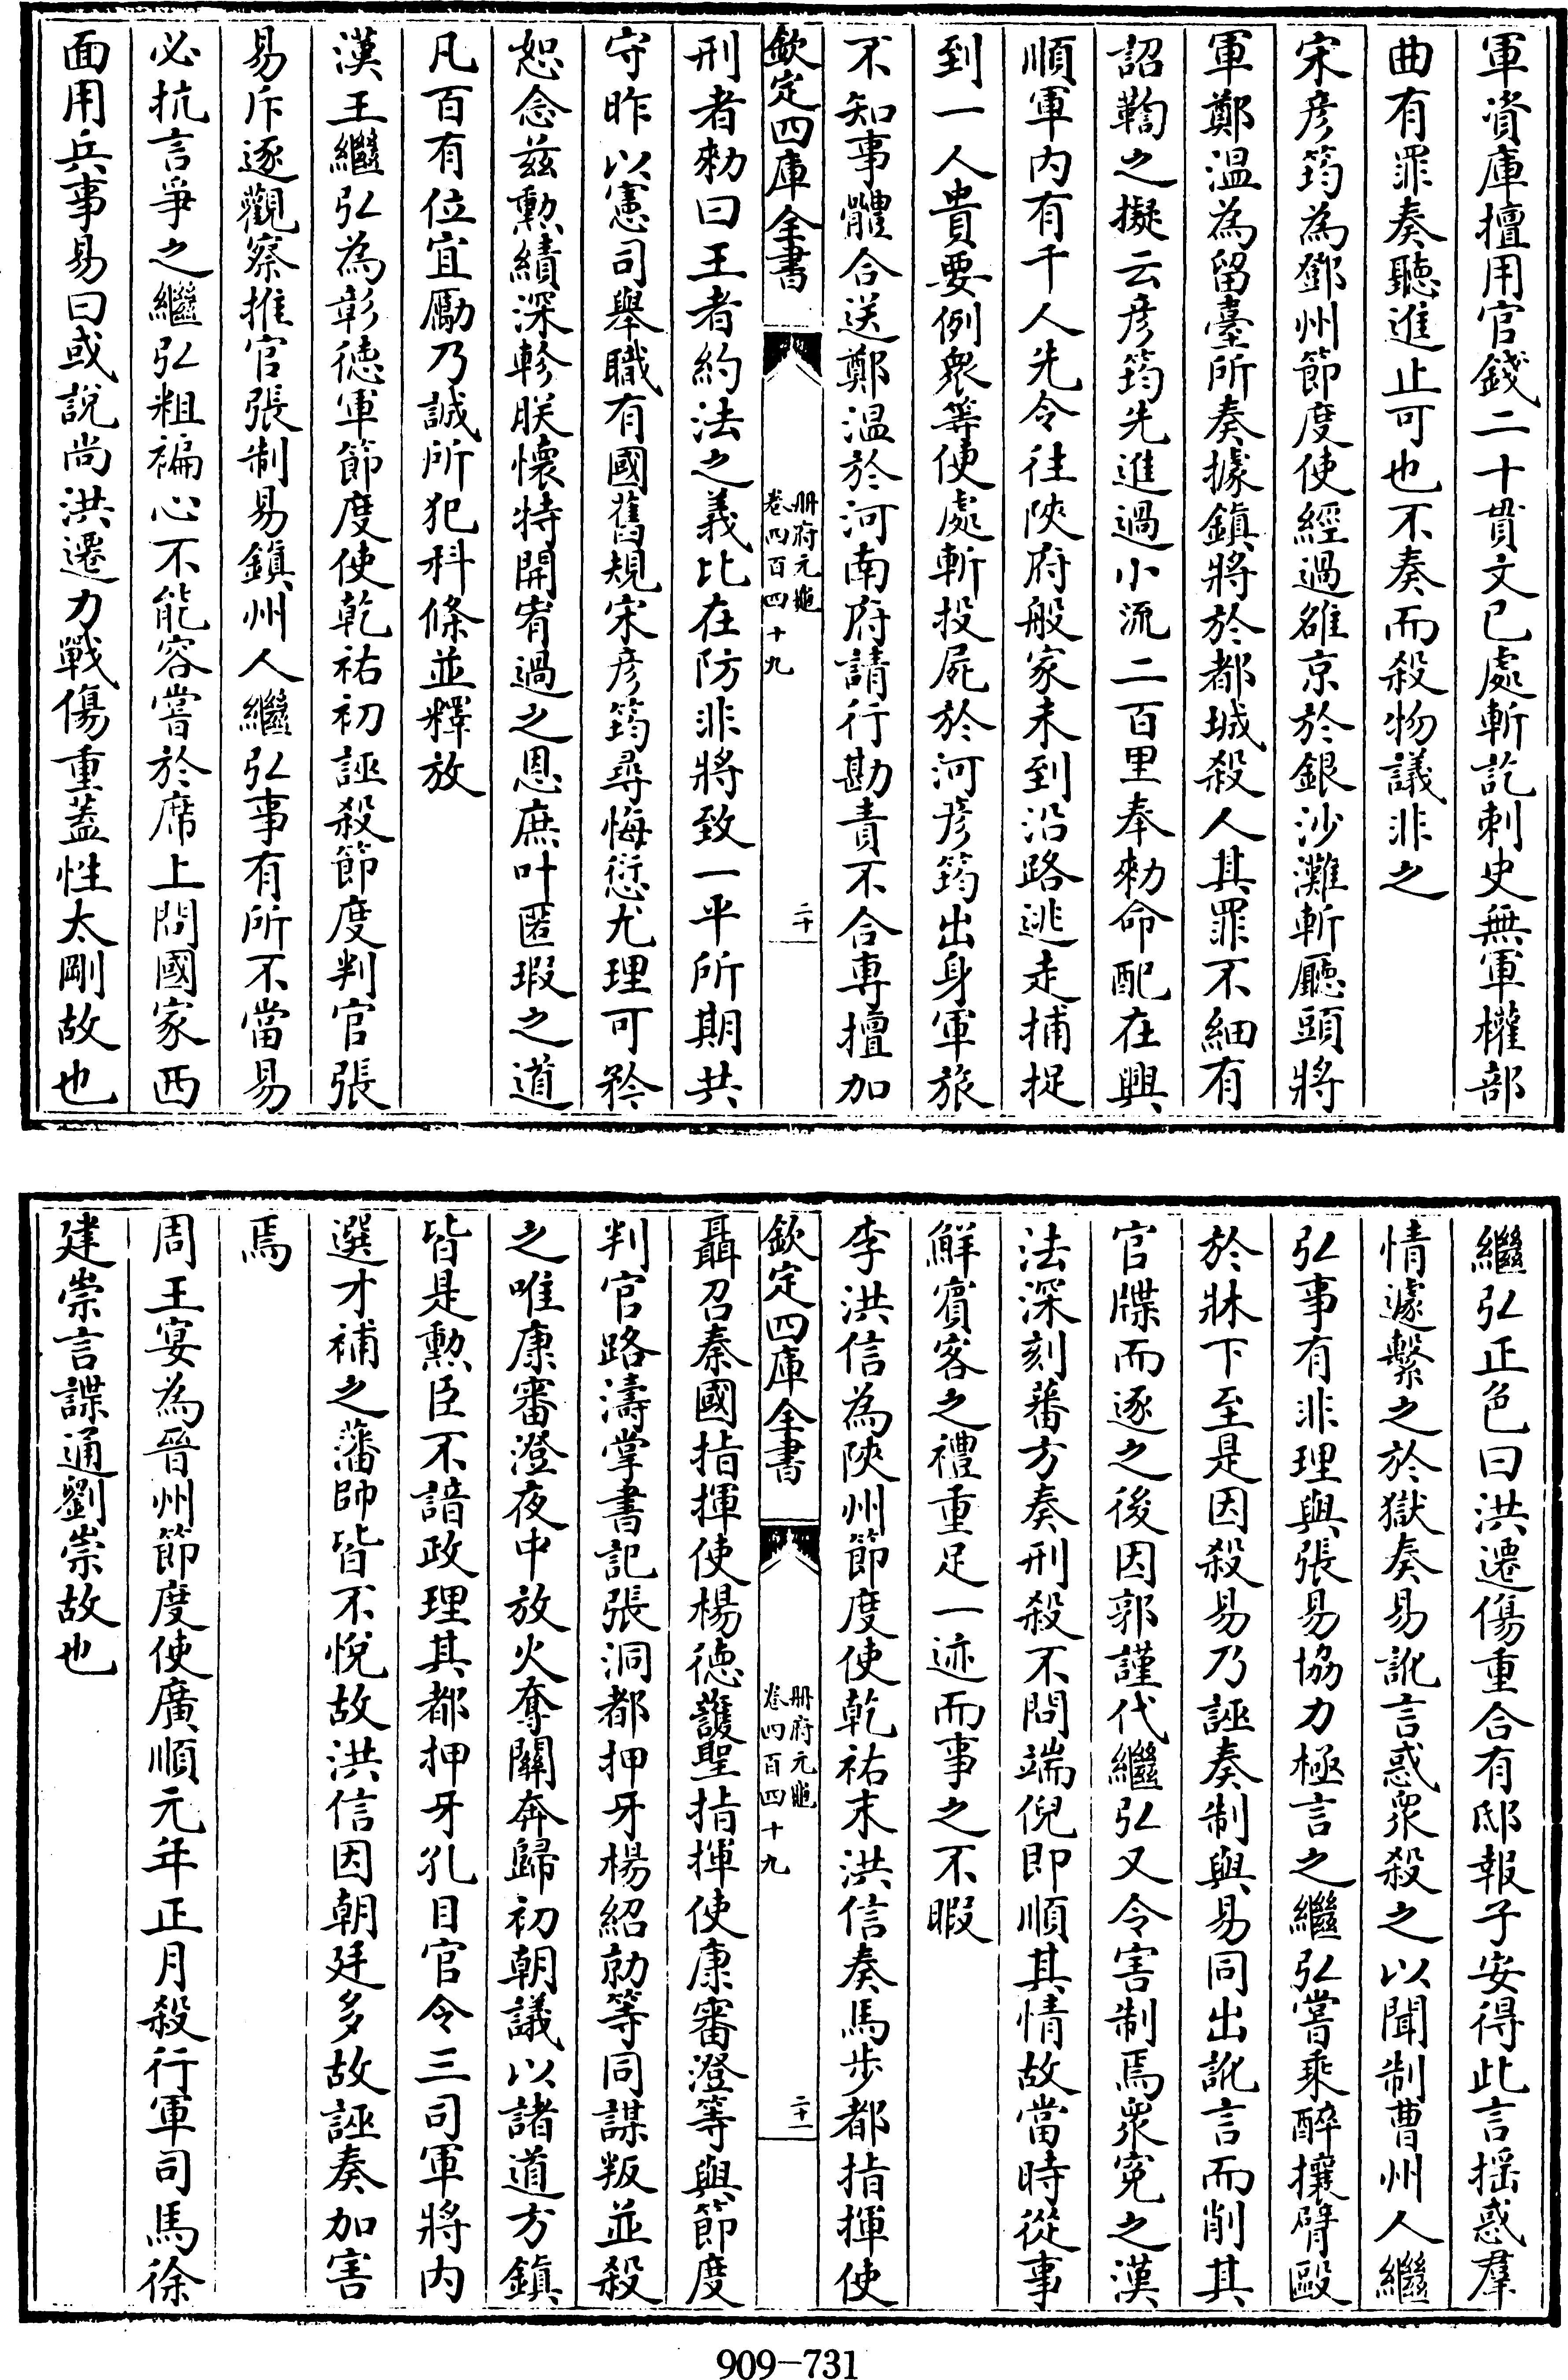 軍資庫擅用官錢二十貫文已處斬訖刺史無軍權部
曲有罪奏聽進止可也不奏而殺物議非之
宋彦筠為鄧州節度使經過雒京於銀沙灘斬廳頭將
軍鄭温為留臺所奏據鎮將於都城殺人其罪不細有
詔鞫之擬云彦筠先進過小流二百里奉勅命配在興
順軍内有千人先令往陜府般家未到沿路逃走捕捉
到一人貴要例衆等使處斬投屍於河彦筠出身軍旅
不知事體合送鄭温於河南府請行勘責不合専擅加
欽定四庫全書
冊府元龜
卷四百四十九
二十
刑者勅曰王者約法之義比在防非將致一平所期共
守昨以憲司舉職有國舊規宋彦筠尋悔愆尤理可矜
恕念兹勲績深軫朕懷特開宥過之恩庶叶匿瑕之道
凡百有位宜勵乃誠所犯科條並釋放
漢王繼弘為彰徳軍節度使乾祐初誣殺節度判官張
易斥逐觀察推官張制易鎮州人繼弘事有所不當易
必抗言爭之繼弘粗褊心不能容嘗於席上問國家西
面用兵事易曰或說尚洪遷力戰傷重蓋性太剛故也
繼弘正色曰洪遷傷重合有邸報子安得此言揺惑羣
情遽繫之於獄奏易訛言惑衆殺之以聞制曹州人繼
弘事有非理與張易協力極言之繼弘嘗乘醉攘臂毆
於牀下至是因殺易乃誣奏制與易同出訛言而削其
官牒而逐之後因郭謹代繼弘又令害制焉衆寃之漢
法深刻蕃方奏刑殺不問端倪即順其情故當時從事
鮮賓客之禮重足一迹而事之不暇
李洪信為陜州節度使乾祐末洪信奏馬步都指揮使
欽定四庫全書
冊府元龜
卷四百四十九
二十一
聶召秦國指揮使楊徳護聖指揮使康審澄等與節度
判官路濤掌書記張洞都押牙楊紹勍等同謀叛並殺
之唯康審澄夜中放火奪關奔歸初朝議以諸道方鎮
皆是勲臣不諳政理其都押牙孔目官令三司軍將内
選才補之藩帥皆不悅故洪信因朝廷多故誣奏加害
焉
周王宴為晉州節度使廣順元年正月殺行軍司馬徐
建崇言諜通劉崇故也
909-731